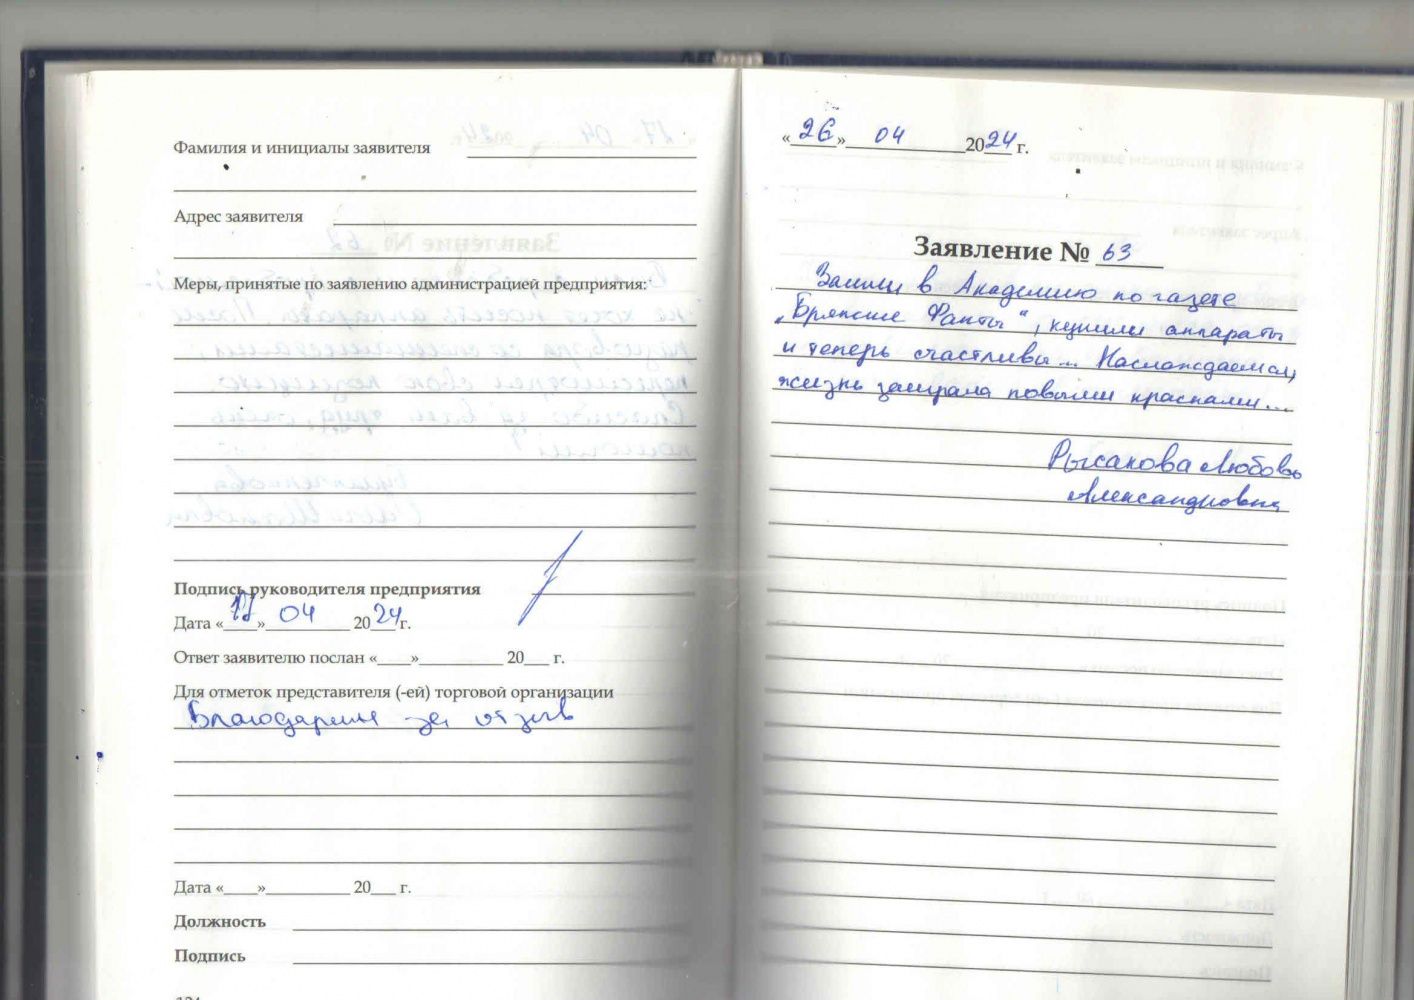 Фамилия и инициалы заявителя
Адрес заявителя
Меры, принятые по заявлению администрацией предприятия:
Подпись руководителя предприятия
Дата «17» 04 2024 г.
Ответ заявителю послан «___»__________ 20___ г.
Для отметок представителя (-ей) торговой организации
Благодарим за отзыв
Дата «____»__________ 20___ г.
Должность
Подпись
«26» 04 2024 г.
Заявление № 63
Зашли в Академию по газете
„Брянские Факты“, купили аппараты
и теперь счастливы... Наслаждаемся,
жизнь заиграла новыми красками...
Рысакова Любовь
Александровна